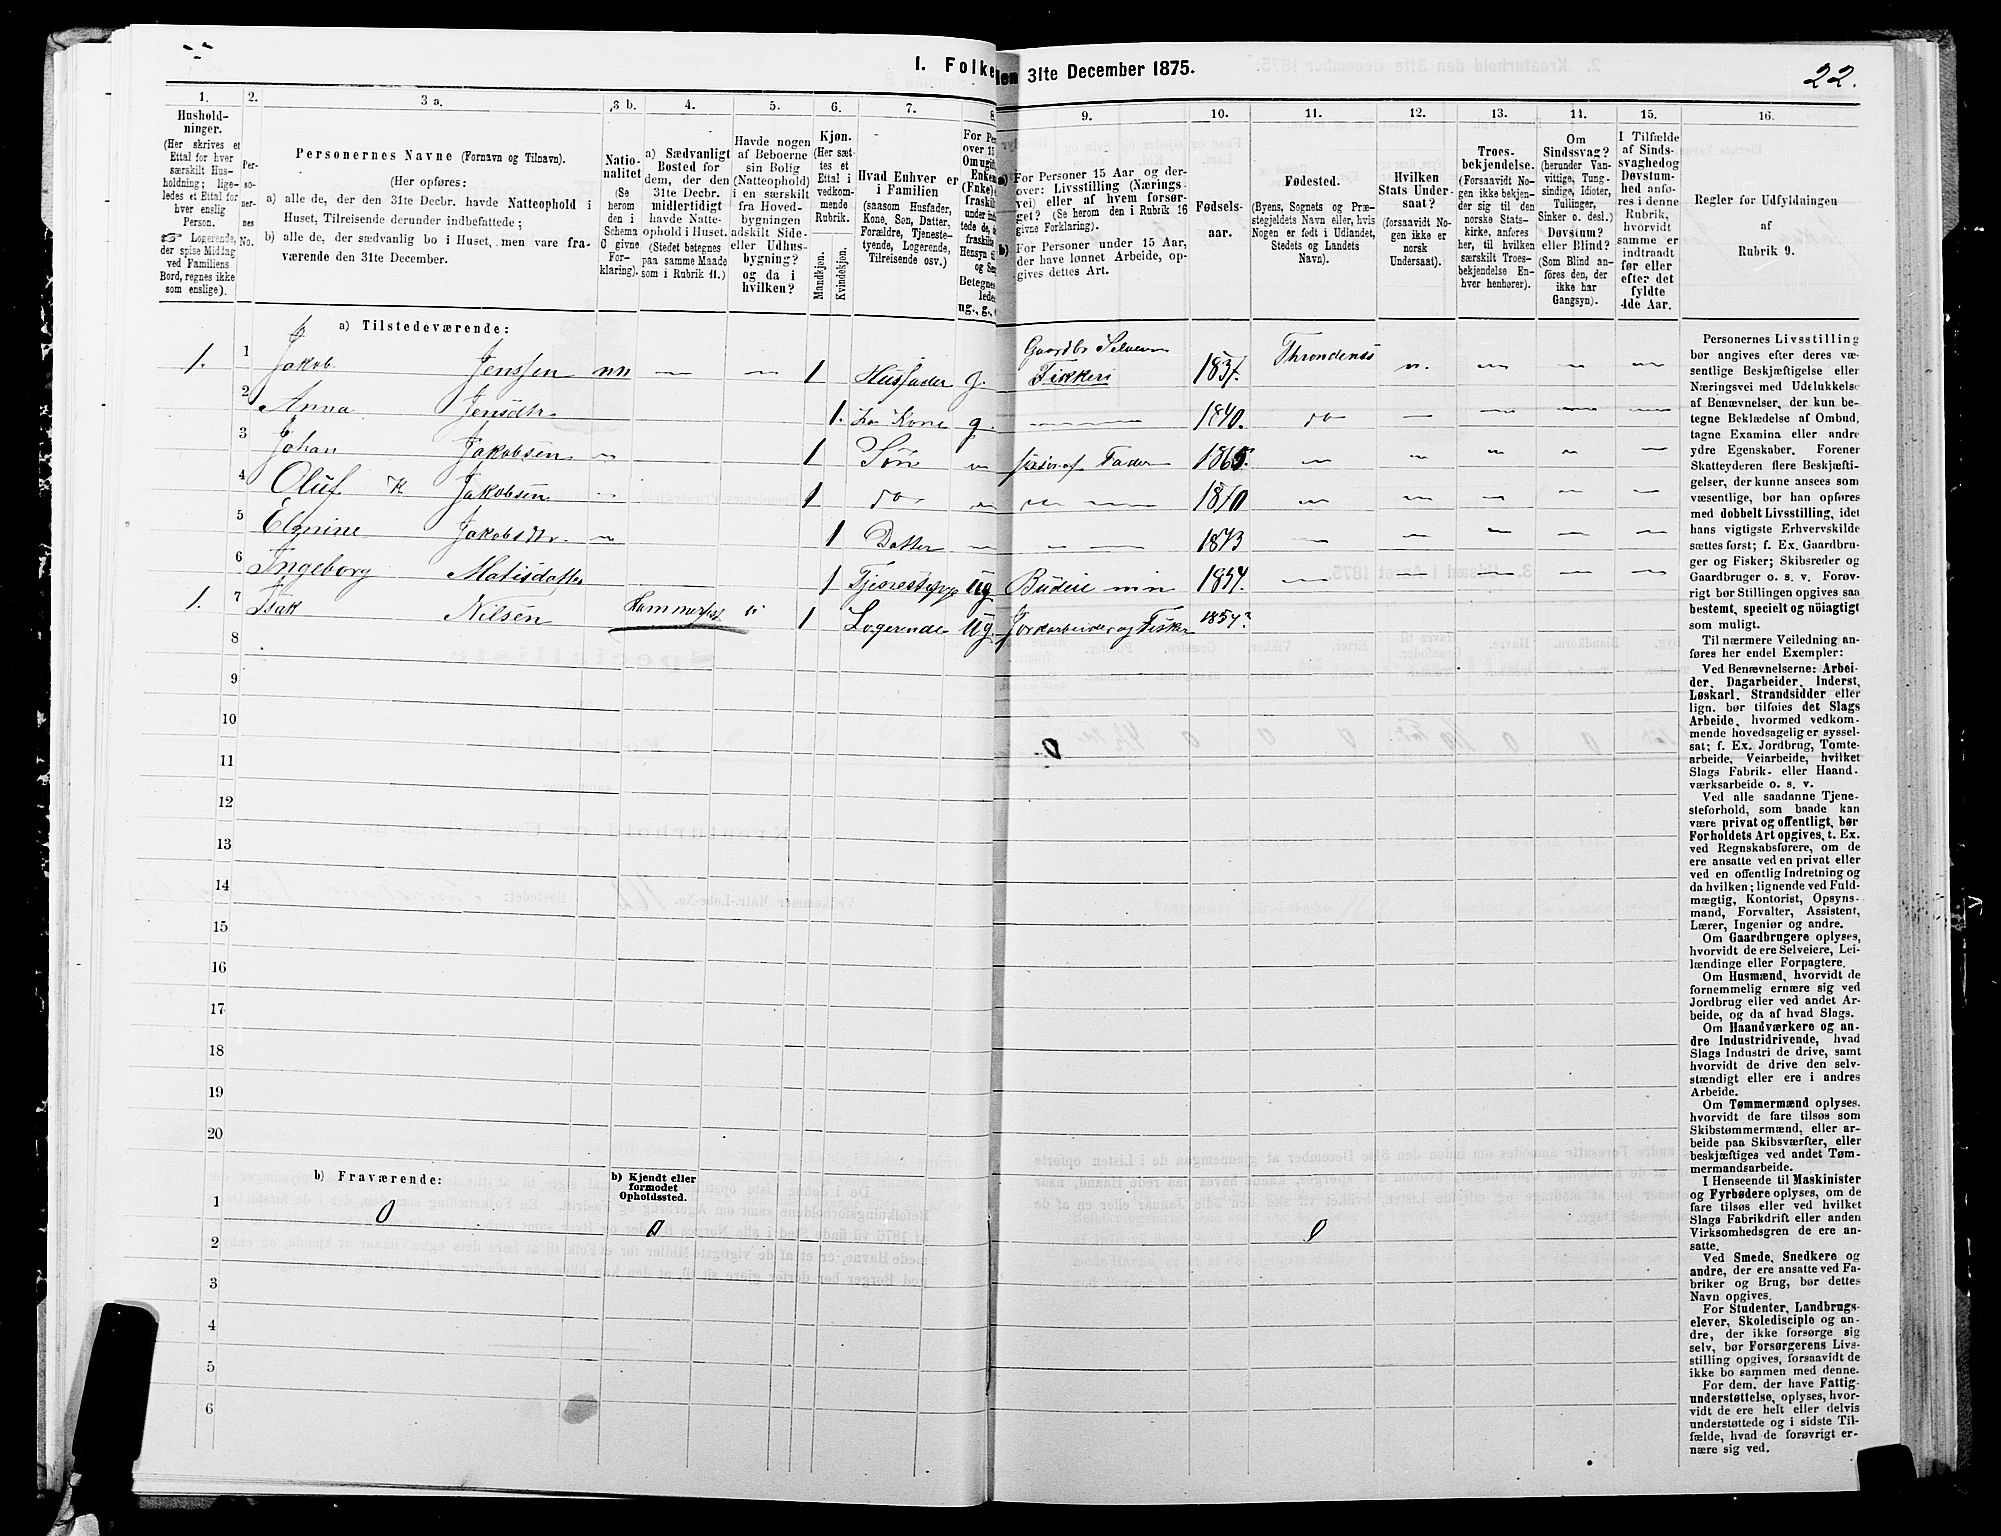 1. Folke
len 31te December 1875.
22.
1.
2.
3 a.
3 b.
4.
5.
6.
7.
8.
9.
10.
11.
12.
13.
14.
15.
16.
Hushold-
ninger.
(Her skrives et
Ettal for hver
særskilt Hus-
holdning; lige-
ledes et Ettal for
hver enslig
Person.
☞ Logerende,
der spise Middag
ved Familiens
Bord, regnes ikke
som enslige).
Per-
so-
ner-
nes
No.
Personernes Navne (Fornavn og Tilnavn).
(Her opføres:
a) alle de, der den 31te Decbr. havde Natteophold i
Huset, Tilreisende derunder indbefattede;
b) alle de, der sædvanlig bo i Huset, men vare fra-
værende den 31te December.
Natio-
nalitet
(Se
herom
den i
Schema
O givne
For-
klaring).
a) Sædvanligt
Bosted for
dem, der den
31te Decbr.
midlertidigt
havde Natte-
ophold i Huset.
(Stedet betegnes
paa samme Maade
som i Rubrik 11.)
Havde nogen
af Beboerne
sin Bolig
(Natteophold)
i en særskilt
fra Hoved-
bygningen
adskilt Side-
eller Udhus-
bygning?
og da i
hvilken?
Kjøn.
(Her sæt-
tes et
Ettal i
vedkom-
mende
Rubrik.
Mandkjøn.
Kvindekjøn.
Hvad Enhver er
i Familien
(saasom Husfader,
Kone, Søn, Datter,
Forældre, Tjeneste-
tyende, Logerende,
Tilreisende osv.).
For Pe
over 1
Om ugift
Enken
(Fnke),
fraskilt
under ind
tede de, a
fraskilte
Hensyn ti
og Se
Betegnes
ledes
ug., g.,
a)
For Personer 15 Aar og der-
over: Livsstilling (Nærings
vei) eller af hvem forsør-
get? (Se herom den i Rubrik 16
givne Forklaring.)
b)
For Personer under 15 Aar,
der have lønnet Arbeide, op-
gives dettes Art.
Fødsels-
aar.
Fødested.
(Byens, Sognets og Præ-
stegjeldets Navn eller, hvis
Nogen er født i Udlandet,
Stedets og Landets
Navn).
Hvilken
Stats Under-
saat?
(forsaavidt No-
gen ikke er
norsk
Undersaat).
Troes-
bekjendelse.
(Forsaavidt No-
gen ikke bekjen-
der sig til den
norske Stats-
kirke, anføres
her, til hvilken
særskilt Troes-
bekjendelse En-
hver henhører).
Om
Sindssvag?
(herunder Van-
vittige, Tung-
sindige, Idioter,
Tullinger,
Sinker o. desl.)
Døvstum?
eller Blind?
(Som Blind an-
føres den, der
ikke har
Gangsyn).
I Tilfælde
af Sinds-
svaghedog
Døvstum-
hed anfø-
res i denne
Rubrik,
hvorvidt
samme er
indtraadt
før eller
efter det
fyldte
4de Aar.
Regler for Udfyldningen
af
Rubrik 9.
a) Tilstedeværende:
1. 1 Jakob Jenssen nn — — 1 Husfader g. Gaardbr Selveier Fiskeri 1837. Throndenes n. — — —
2 Anna Jensdtr 1. hs Kone g. — 1840. do — — — —
3 Johan Jakobsen — 1 Søn — forsør. af Fader 1865. — — — — —
4 Oluf K Jakobsen — 1 do — — — 1870 — — — — —
5 Elznine Jakobsdtr — 1 Datter — — 1873 — — — — —
6 Ingeborg Matisdatter 1 Ug Budeie 1857. — — — — —
1. 7 Isak Nilsen Hammerfest 1 Logerende Ug. Jordarbeider og Fisker 1854?
8
9
10
11
0
12
13
14
15
16
17
18
19
20
b) Fraværende:
b) Kjendt eller
formodet
Opholdssted.
1 0 0 0
2
3
4
5
6
Personernes Livsstilling
bør angives efter deres væ-
sentlige Beskjæftigelse eller
Næringsvei med Udelukkelse
af Benævnelser, der kun be-
tegne Beklædelse af Ombud,
tagne Examina eller andre
ydre Egenskaber. Forener
Skatteyderen flere Beskjæfti-
gelser, der kunne ansees som
væsentlige, bør han opføres
med dobbelt Livsstilling, idet
hans vigtigste Erhvervskilde
sættes først; f. Ex. Gaardbru-
ger og Fisker; Skibsreder og
Gaardbruger o. s. v. Forøv-
rigt bør Stillingen opgives saa
bestemt, specielt og nöiagtigt
som muligt.
Til nærmere Veiledning an-
føres her endel Exempler:
Ved Benævnelserne: Arbei-
der, Dagarbeider, Inderst,
Løskarl, Strandsidder eller
lign. bør tilføies det Slags
Arbeide, hvormed vedkom-
mende hovedsagelig er syssel-
sat; f. Ex. Jordbrug, Tomte-
arbeide, Veiarbeide, hvilket
Slags Fabrik- eller Haand-
værksarbeide o. s. v.
Ved alle saadanne Tjene-
steforhold, som baade kan
være privat og offentligt, bør
Forholdets Art opgives, t. Ex.
ved Regnskabsførere, om de
ere ansatte ved en privat eller
ved en offentlig Indretning og
da hvilken; lignende ved Fuld-
mægtig, Kontorist, Opsyns-
mand, Forvalter, Assistent,
Lærer, Ingeniør og andre.
Om Gaardbrugere oplyses,
hvorvidt de ere Selveiere, Lei-
lændinge eller Forpagtere.
Om Husmænd, hvorvidt de
fornemmelig ernære sig ved
Jordbrug eller ved andet Ar-
beide, og da af hvad Slags.
Om Haandværkere og an-
dre Industridrivende, hvad
Slags Industri de drive, samt
hvorvidt de drive den selv-
stændigt eller ere i andres
Arbeide.
Om Tømmermænd oplyses.
hvorvidt de fare tilsøs som
Skibstømmermænd, eller ar-
beide paa Skibsværfter, eller
beskjæftiges ved andet Tøm-
mermandsarbeide.
I Henseende til Maskinister
og Fyrbødere oplyses, om de
fare tilsøs eller ved hvilket
Slags Fabrikdrift eller anden
Virksomhedsgren de ere an-
satte.
Ved Smede, Snedkere og
andre, der ere ansatte ved Fa-
briker og Brug, bør dettes
Navn opgives.
For Studenter, Landbrugs-
elever, Skoledisciple og an-
dre, der ikke forsørge sig
selv, bør Forsørgerens Livs-
stilling opgives, forsaavidt de
ikke bo sammen med denne.
For dem, der have Fattig-
understøttelse, oplyses, hvor-
vidt de ere helt eller delvis
understøttede og i sidste Til-
fælde, hvad de forøvrigt er-
nære sig ved.